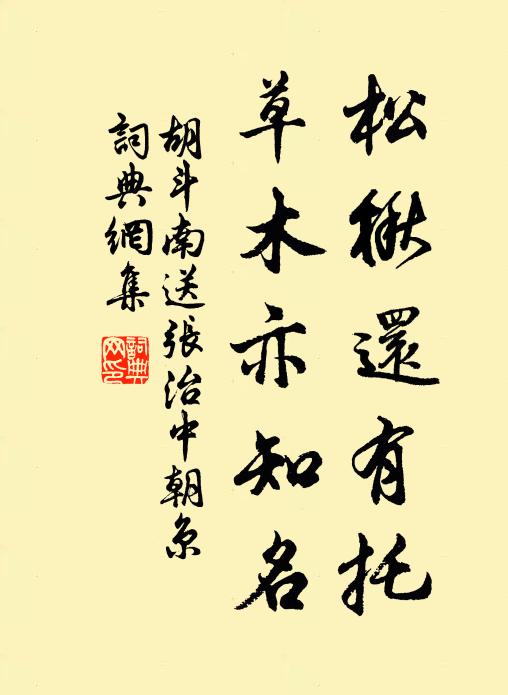 松楸還有托
草木亦知名
胡斗南送張治中朝京
詞典網集
詞典網印